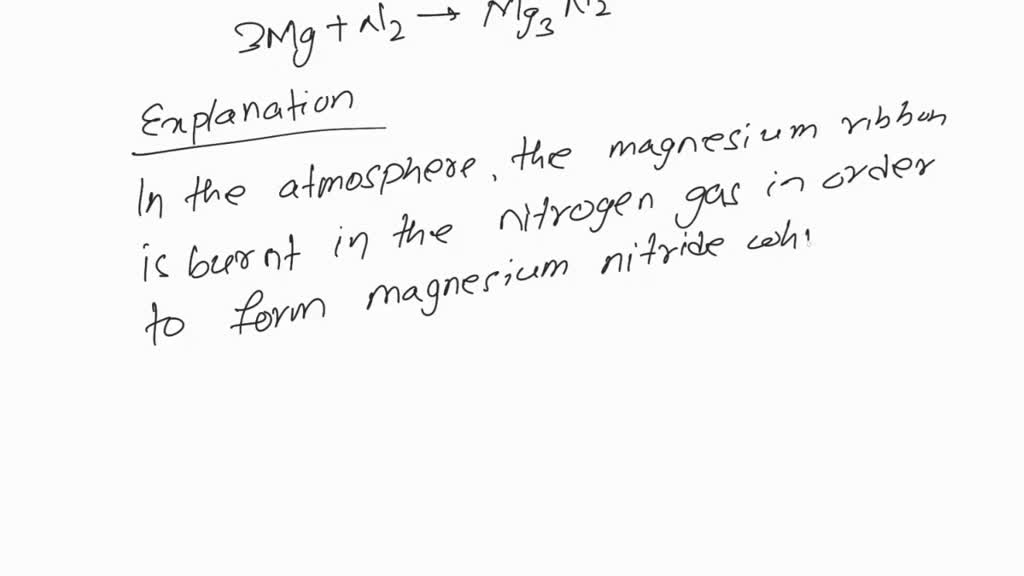 3Mg + N2 → Mg3N2
Explanation
In the atmosphere, the magnesium ribbon
is burnt in the nitrogen gas in order
to form magnesium nitride whi